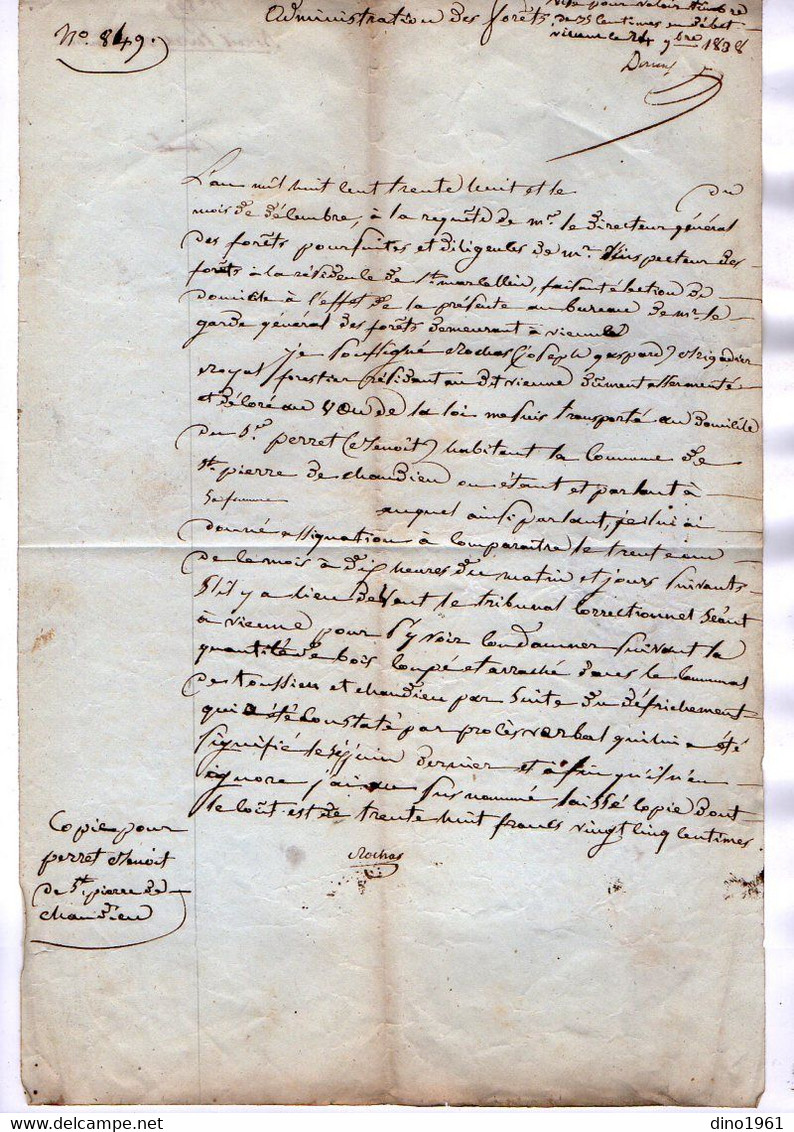 Administration des forêts
Visé pour valoir timbre
de 35 centimes en débet
vienne le 24 9bre 1838
N° 849.
L'an mil huit cent trente huit et le du
mois de décembre, à la requête de mr. le Directeur général
des forêts poursuites et diligences de mr. l'inspecteur des
forêts à la résidence de St marcellin, faisant élection de
domicile à l'effet de la présente au bureau de mr. le
garde général des forêts demeurant à vienne
je soussigné Rochas (joseph gaspard) Brigadier
Royal forestier résidant au dit vienne dûment assermenté
et décoré au vœu de la loi me suis transporté au domicile
du Sr. perret (Benoît) habitant la commune de
St. pierre de chandieu ou étant et parlant à
sa femme auquel ainsi parlant, je lui ai
donné assignation à comparaître le trente un
de ce mois à dix heures du matin et jours suivants
S'il y a lieu devant le tribunal correctionnel séant
à vienne pour s'y voir condamner suivant la
quantité de bois coupé et arraché dans le communal
de toussieu et chandieu par suite du défrichement
qui a été constaté par procès verbal qui lui a été
signifié le juin dernier et afin qu'il n'en
ignore j'ai au susnommé laissé copie dont
le coût est de trente huit francs vingt cinq centimes.
Rochas
Copie pour
perret Benoit
de St. pierre de
chandieu
dino1961